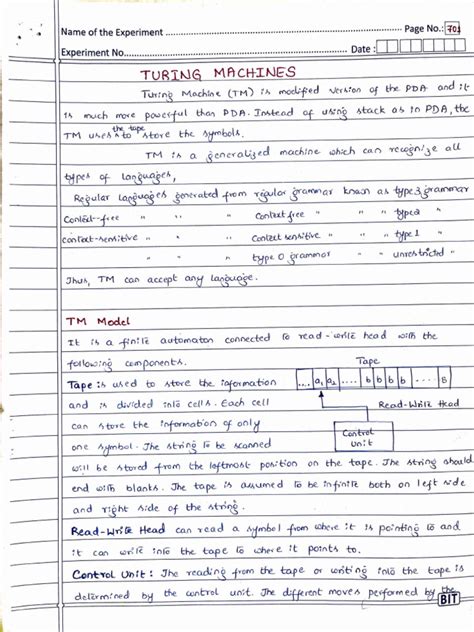 Name of the Experiment ........ Page No.: 701
Experiment No. ........ Date :
TURING MACHINES
Turing Machine (TM) is modified version of the PDA and it
is much more powerful than PDA. Instead of using stack as in PDA, the
TM uses the tape to store the symbols.
TM is a generalized machine which can recognize all
types of languages,
Regular languages generated from regular grammar known as type3 grammar
Context-free " " " Context free " " type2 "
context-sensitive " " " Context sensitive " " type 1 "
type 0 grammar " unrestricted "
Thus, TM can accept any language.
TM Model
It is a finite automaton connected to read-write head with the
following components.
Tape
Tape : is used to store the information
.... a1 a2 .... b b b b .... B
and is divided into cells. Each cell
Read-Write Head
can store the information of only
Control
one symbol. The string to be scanned
unit
will be stored from the leftmost position on the tape. The string should
end with blanks. The tape is assumed to be infinite both on left side
and right side of the string.
Read-Write Head can read a symbol from where it is pointing to and
it can write into the tape to where it points to.
Control Unit : The reading from the tape or writing into the tape is
determined by the control unit. The different moves performed by the
BIT